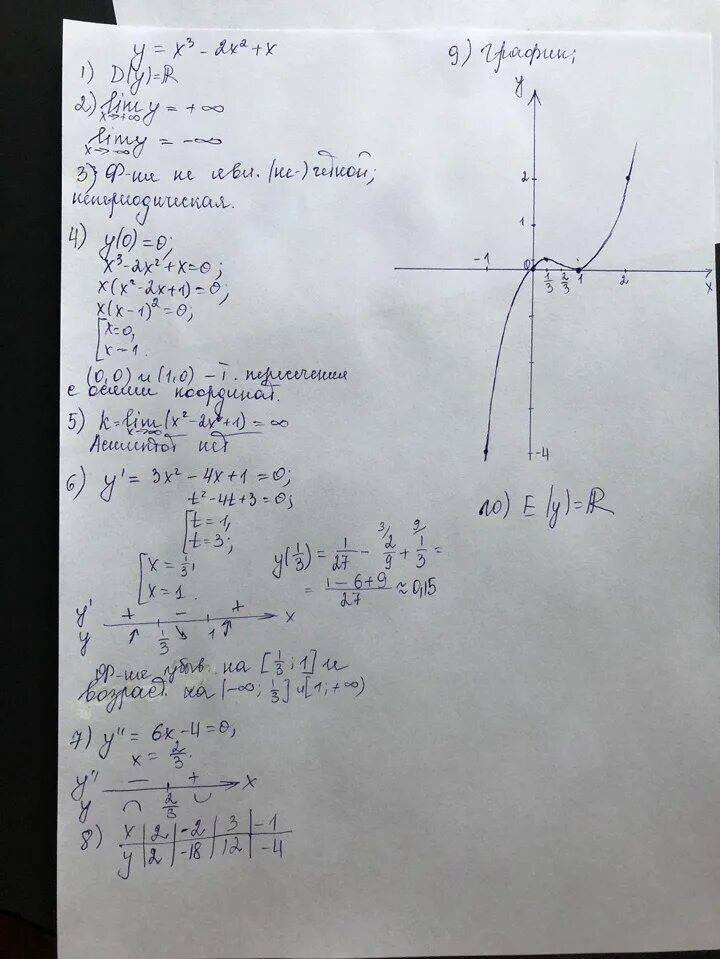 y = x³ - 2x² + x
1) D(y)=ℝ
2) lim y = +∞
x→+∞
lim y = -∞
x→-∞
3) Ф-ия не явл. (не-) четной;
непериодическая.
4) y(0)=0;
x³-2x²+x=0;
x(x²-2x+1)=0;
x(x-1)²=0;
[x=0,
x-1.
(0,0) и (1,0) - т. пересечения
с осями координат.
5) k=lim (x²-2x+1) = ∞
x→∞
Асимптот нет
6) y' = 3x²-4x+1=0;
t²-4t+3=0;
[t=1,
t=3;
[x=1/3,
x=1.
y(1/3) = 1/27 - 2/9 + 1/3 =
3/ 9/
= (1-6+9)/27 ≈ 0,15
y' + - + x
y ↗ 1/3 ↘ 1 ↗
Ф-ия убыв. на [1/3; 1] и
возраст. на (-∞; 1/3] и [1; +∞)
7) y'' = 6x-4=0,
x = 2/3.
y'' - + x
y ∩ 2/3 ∪
8) x | 2 | -2 | 3 | -1
y | 2 | -18 | 12 | -4
9) График;
y
2
1
-1 0 1/3 2/3 1 2 x
-4
10) E(y)=ℝ